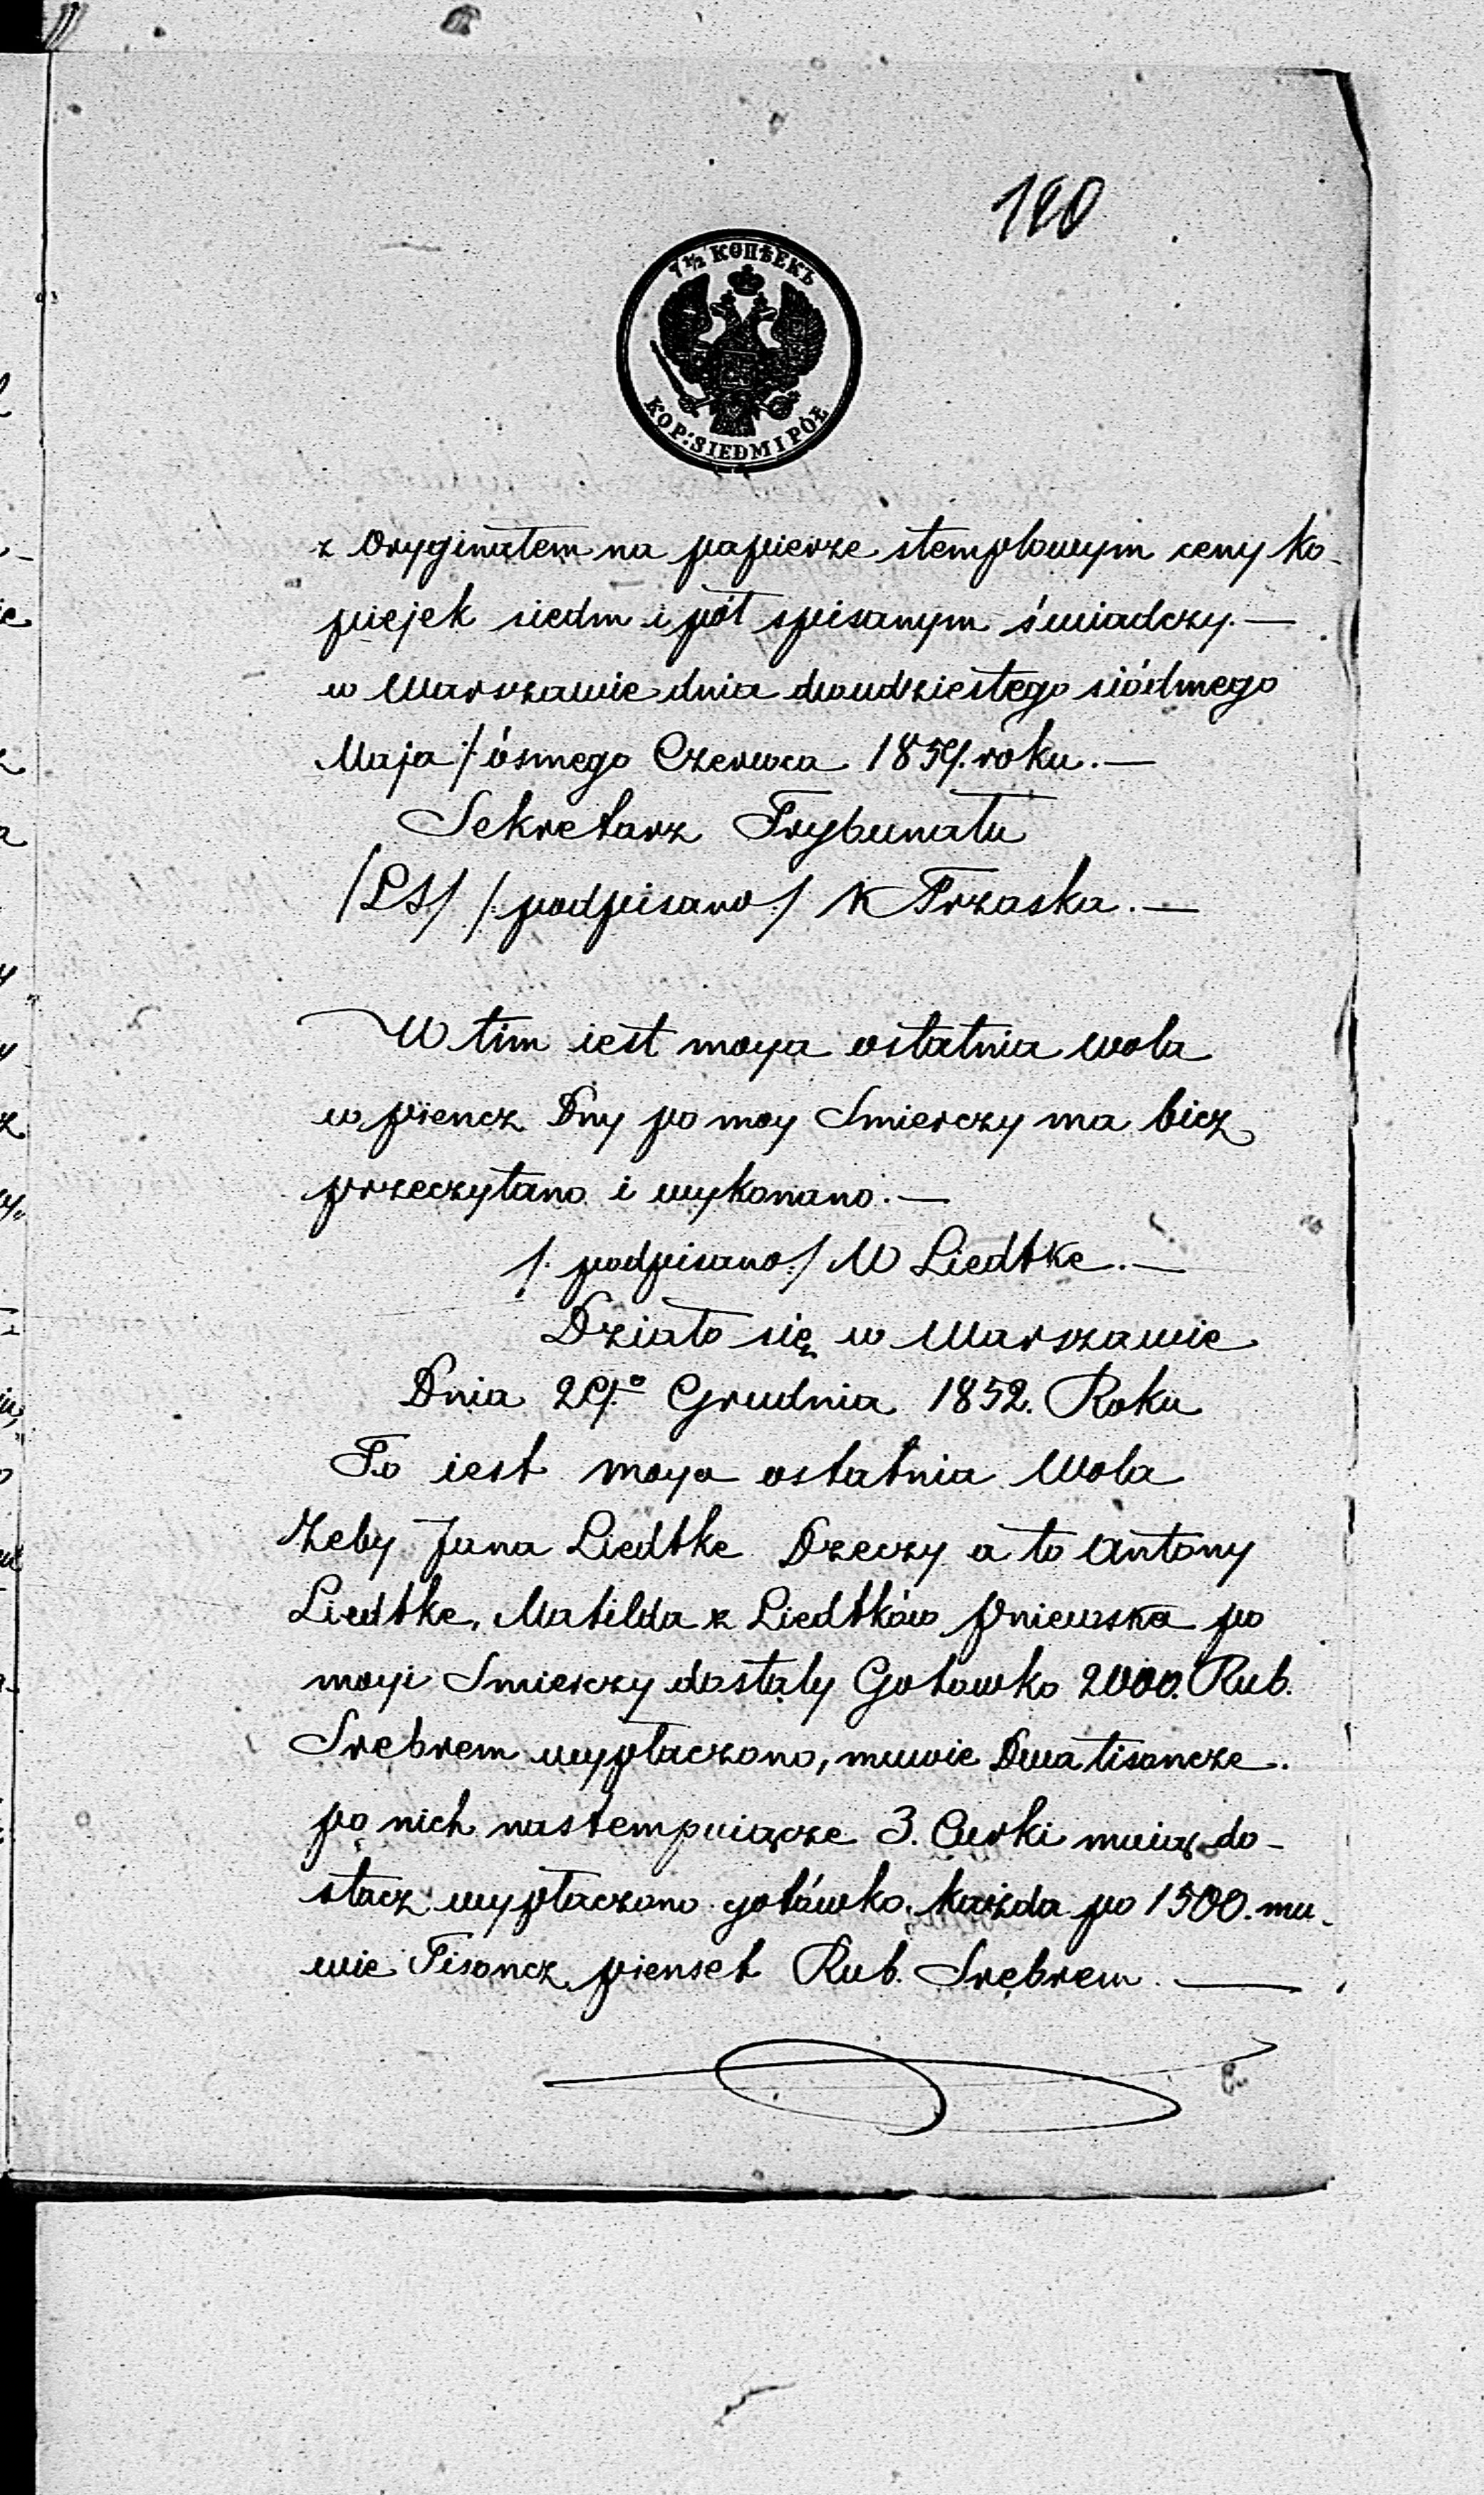 120
7 1/2 КОПѢЕКЪ
KOP: SIEDM I PÓŁ
z Oryginałem na papierze stemplowym ceny ko-
piejek siedm i pół spisanym świadczy.—
w Warszawie dnia dwudziestego siódmego
Maja /: ósmego Czerwca 1859. roku.—
Sekretarz Trybunału
/LS/ /: podpisano :/ K Trzaska.—
W tim iest moya ostatnia wola
w piencz Dny po moy Smierczy ma bicz
przeczytano i wykonano.—
/: podpisano :/ W Liedtke.—
Działo się w Warszawie
Dnia 29.º Grudnia 1852. Roku
To iest moya ostatnia Wola
Zeby Jana Liedtke Dzeczy a to Antony
Liedtke, Matilda z Liedtków Pniewska po
moyi Smierczy dostały Gotowko 2000. Rub.
Srebrem wypłaczono, muwie Dwa tisoncze.
po nich nastempuiącze 3. Curki muią do-
stacz wypłaczono gotówko każda po 1500. mu-
wie Tisoncz pienset Rub. Srebrem.—